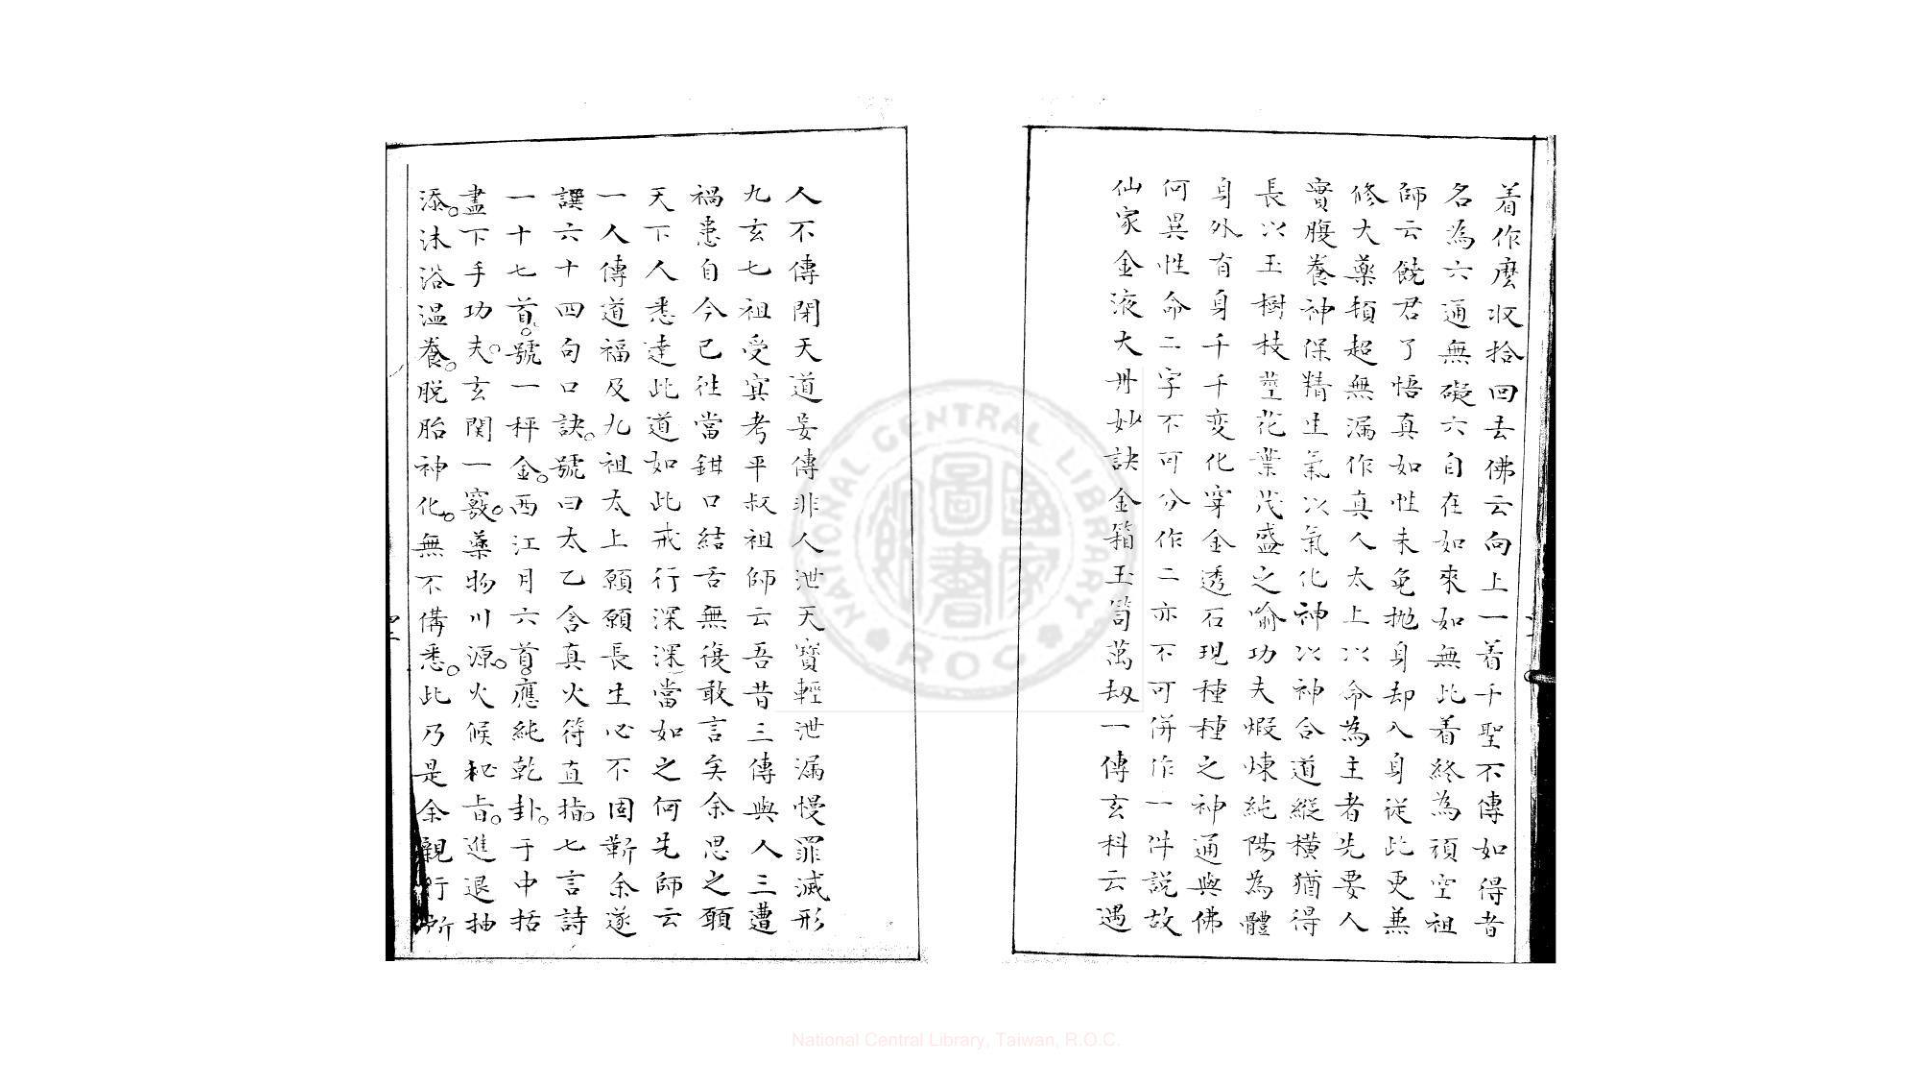 着作麼收拾回去佛云向上一着千聖不傳如得者
名為六通無礙六自在如來如無此着終為頑空祖
師云饒君了悟真如性未免抛身却入身従此更兼
修大藥頓超無漏作真人太上以命為主者先要人
實腹養神保精生氣以氣化神以神合道縱橫猶得
長以玉樹枝莖花葉茂盛之喻功夫煆煉純陽為體
身外有身千千变化穿金透石現種種之神通與佛
何異性命二字不可分作二亦不可併作一件説故
仙家金液大丹妙訣金箱玉笥萬刼一傳玄科云遇
人不傳閉天道妄傳非人泄天寶輕泄漏慢罪滅形
九玄七祖受寘考平叔祖師云吾昔三傳與人三遭
禍患自今已徃當鉗口結舌無復敢言矣余思之願
天下人悉達此道如此戒行深深當如之何先師云
一人傳道福及九祖太上願願長生心不固蘄余遂
譔六十四句口訣號曰太乙含真火符直指七言詩
一十七首號一秤金西江月六首應純乾卦于中括
盡下手功夫玄関一竅藥物川源火候秘旨進退抽
添沐浴温養脱胎神化無不備悉此乃是余親行所
National Central Library, Taiwan, R.O.C.
NATIONAL CENTRAL LIBRARY
ROC
國家圖書館